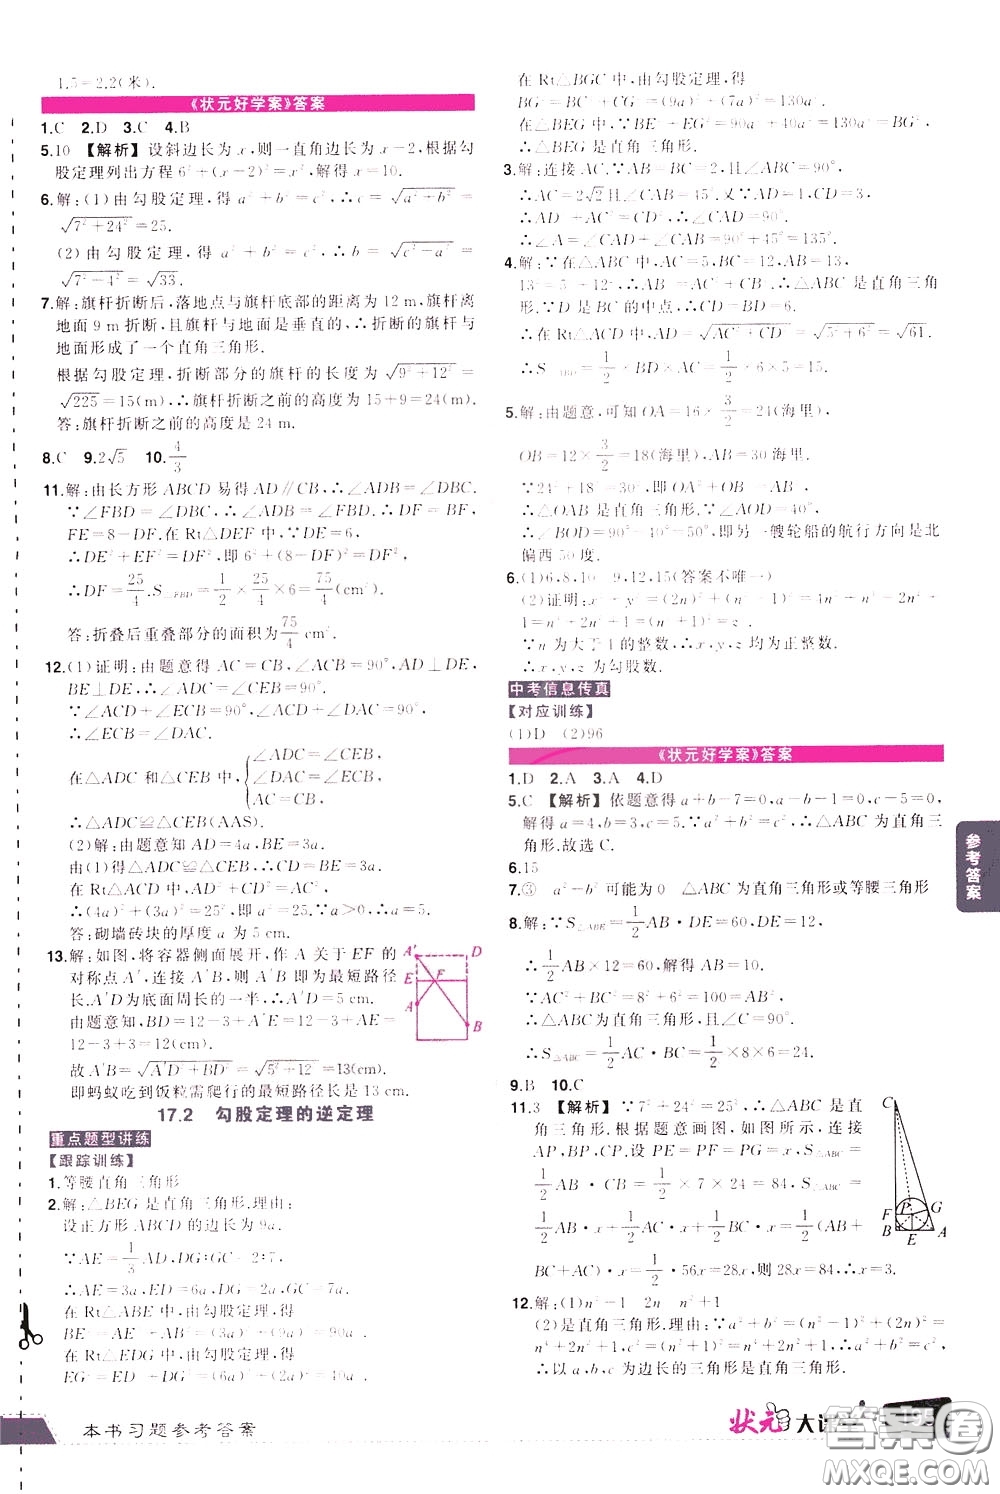 1.5=2.2(米).
《状元好学案》答案
1.C　2.D　3.C　4.B
5.10　【解析】设斜边长为x,则一直角边长为x-2,根据勾
股定理列出方程 6²+(x-2)²=x²,解得 x=10.
6.解:(1)由勾股定理,得 a²+b²=c²,∴c=√(a²+b²)=
√(7²+24²)=25.
(2)由勾股定理,得 a²+b²=c²,∴b=√(c²-a²)=
√(7²-4²)=√33.
7.解:旗杆折断后,落地点与旗杆底部的距离为 12 m,旗杆离
地面 9 m 折断,且旗杆与地面是垂直的,∴折断的旗杆与
地面形成了一个直角三角形.
根据勾股定理,折断部分的旗杆的长度为 √(9²+12²)=
√225=15(m),∴旗杆折断之前的高度为 15+9=24(m).
答:旗杆折断之前的高度是 24 m.
8.C　9.2√5　10.4/3
11.解:由长方形 ABCD 易得 AD∥CB,∴∠ADB=∠DBC.
∵∠FBD=∠DBC,∴∠ADB=∠FBD.∴DF=BF,
FE=8-DF.在 Rt△DEF 中,∵DE=6,
∴DE²+EF²=DF²,即 6²+(8-DF)²=DF².
∴DF=25/4.S△FBD=1/2×25/4×6=75/4(cm²).
答:折叠后重叠部分的面积为 75/4 cm².
12.(1)证明:由题意得 AC=CB,∠ACB=90°,AD⊥DE,
BE⊥DE,∴∠ADC=∠CEB=90°.
∵∠ACD+∠ECB=90°,∠ACD+∠DAC=90°,
∴∠ECB=∠DAC.
在△ADC 和△CEB 中,{∠ADC=∠CEB, ∠DAC=∠ECB, AC=CB,
∴△ADC≌△CEB(AAS).
(2)解:由题意知 AD=4a,BE=3a,
由(1)得△ADC≌△CEB,∴DC=BE=3a.
在 Rt△ACD 中,AD²+CD²=AC²,
∴(4a)²+(3a)²=25²,即 a²=25.∵a>0,∴a=5.
答:砌墙砖块的厚度 a 为 5 cm.
13.解:如图,将容器侧面展开,作 A 关于 EF 的
对称点 A′,连接 A′B,则 A′B 即为最短路径
长.A′D 为底面周长的一半,∴A′D=5 cm.
由题意知,BD=12-3+A′E=12-3+AE=
12-3+3=12(cm).
故 A′B=√(A′D²+BD²)=√(5²+12²)=13(cm).
即蚂蚁吃到饭粒需爬行的最短路径长是 13 cm.
A′ D E F A B
17.2　勾股定理的逆定理
重点题型讲练
【跟踪训练】
1.等腰直角三角形
2.解:△BEG 是直角三角形.理由:
设正方形 ABCD 的边长为 9a.
∵AE=1/3AD,DG:GC=2:7,
∴AE=3a,ED=6a,DG=2a,GC=7a.
在 Rt△ABE 中,由勾股定理,得
BE²=AE²+AB²=(3a)²+(9a)²=90a².
在 Rt△EDG 中,由勾股定理,得
EG²=ED²+DG²=(6a)²+(2a)²=40a².
在 Rt△BGC 中,由勾股定理,得
BG²=BC²+CG²=(9a)²+(7a)²=130a².
在△BEG 中,∵BE²+EG²=90a²+40a²=130a²=BG²,
∴△BEG 是直角三角形.
3.解:连接 AC.∵AB=BC=2,且∠ABC=90°,
∴AC=2√2且∠CAB=45°.又∵CD=3,AD=1,
∴AD²+AC²=CD²,∴∠CAD=90°.
∴∠A=∠CAD+∠CAB=90°+45°=135°.
4.解:∵在△ABC 中,AC=5,BC=12,AB=13,
13²=5²+12²,∴△ABC 是直角三角形,且∠C=90°.
∵D 是 BC 的中点,∴CD=BD=6.
∴在 Rt△ACD 中,AD=√(AC²+CD²)=√(5²+6²)=√61.
∴S△ABD=1/2×BD×AC=1/2×6×5=15.
5.解:由题意,可知 OA=16×3/2=24(海里),
OB=12×3/2=18(海里),AB=30(海里).
∵24²+18²=30²,即 OA²+OB²=AB²,
∴△OAB 是直角三角形.∵∠AOD=40°,
∴∠BOD=90°-40°=50°,即另一艘轮船的航行方向是北
偏西 50 度.
6.(1)6,8,10　9,12,15(答案不唯一)
(2)证明:x²+y²=(2n)²+(n²-1)²=4n²+n⁴-2n²+
1=n⁴+2n²+1=(n²+1)²=z².
∵n 为大于 1 的整数,∴x,y,z 均为正整数.
∴x,y,z 为勾股数.
中考信息传真
【对应训练】
(1)D　(2)96
《状元好学案》答案
1.D　2.A　3.A　4.D
5.C　【解析】依题意得 a+b-7=0,a-b-1=0,c-5=0,
解得 a=4,b=3,c=5.∵a²+b²=c²,∴△ABC 为直角三
角形.故选 C.
6.15
7.③　a²-b² 可能为 0　△ABC 为直角三角形或等腰三角形
8.解:∵S△ABE=1/2AB·DE=60,DE=12,
∴1/2AB×12=60.解得 AB=10.
∵AC²+BC²=8²+6²=10²=AB²,
∴△ABC 为直角三角形,且∠C=90°.
∴S△ABC=1/2AC·BC=1/2×8×6=24.
9.B　10.C
11.3　【解析】∵7²+24²=25²,∴△ABC 是直
角三角形.根据题意画图,如图所示,连接
AP,BP,CP.设 PE=PF=PG=x,S△ABC=
1/2AB·BC=1/2×7×24=84,S△ABC=
1/2AB·x+1/2AC·x+1/2BC·x=1/2(AB+
BC+AC)·x=1/2·56x=28x,则 28x=84,x=3.
C F P G B E A
12.解:(1)n²-1　2n　n²+1
(2)是直角三角形.理由:∵a²+b²=(n²-1)²+(2n)²=
n⁴+2n²+1=(n²+1)²,c²=(n²+1)²,∴a²+b²=c²,
∴以 a,b,c 为边长的三角形是直角三角形.
参考答案
本书习题参考答案
状元大课堂
答案圈
MXQE.COM